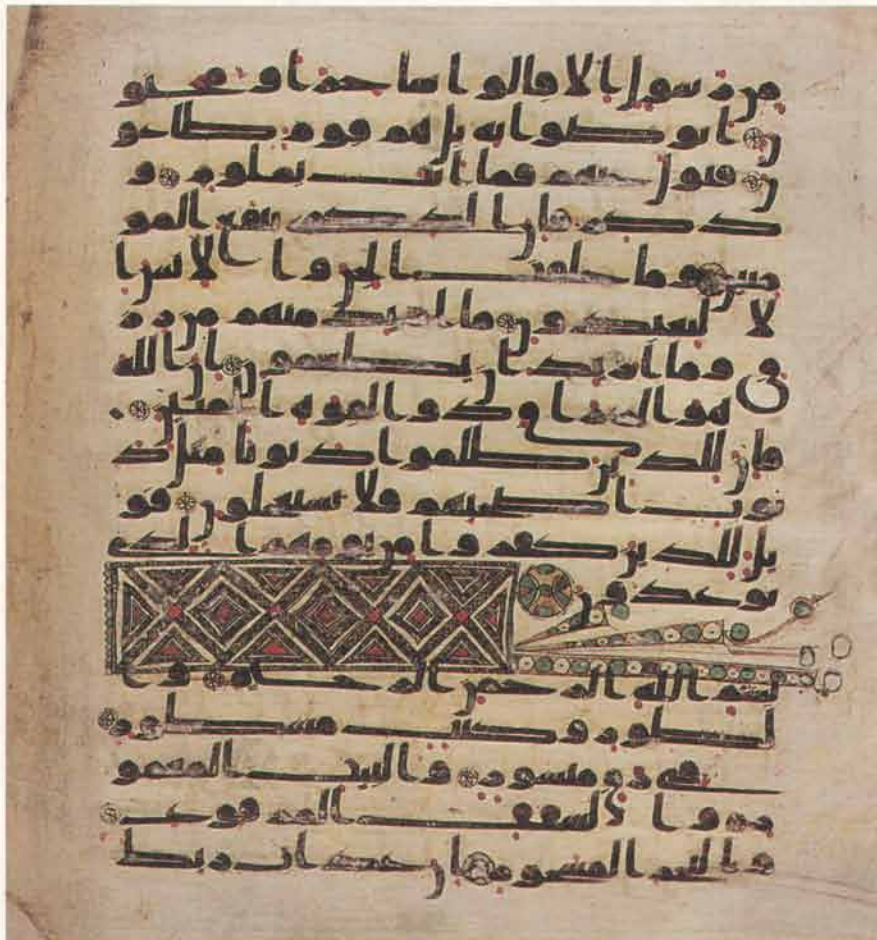 من رسول الا قالوا ساحر او مجنو
ن اتواصوا به بل هم قوم طاغو
ن فتول عنهم فما انت بملوم و
ذكر فان الذكرى تنفع المو
منين وما خلقت الجن والانس ا
لا ليعبدون ما اريد منهم من ر
زق وما اريد ان يطعمون ان الله
هو الرزاق ذو القوة المتين
فان للذين ظلموا ذنوبا مثل ذ
نوب اصحبهم فلا يستعجلون فو
يل للذين كفروا من يومهم الذي
يوعدون
بسم الله الرحمن الرحيم وا
لطور وكتب مسطور
في رق منشور والبيت المعمو
ر والسقف المرفوع
والبحر المسجور ان عذاب ربك